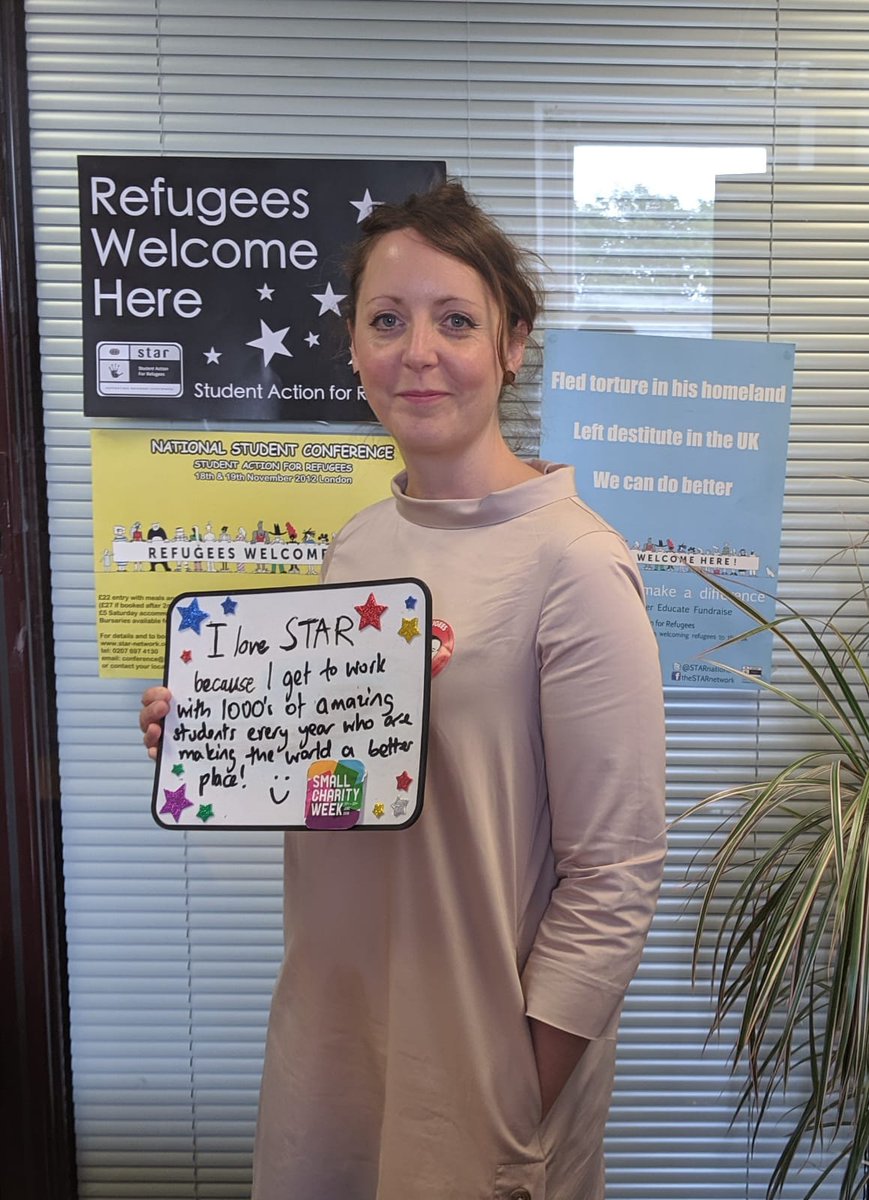 Refugees
Welcome
Here
star
Student Action
For Refugees
Student Action for R
NATIONAL STUDENT CONFERENCE
STUDENT ACTION FOR REFUGEES
18th & 19th November 2012 London
REFUGEES WELCOME
£22 entry with meals
(£27 if booked after
£5 Saturday
Bursaries available
For details and to
www.star-network.
tel: 0207 697 4130
email: conference@
or contact your
I love STAR
because I get to work
with 1000's of amazing
students every year who are
making the world a better
place!
SMALL
CHARITY
WEEK
Fled torture in his homeland
Left destitute in the UK
We can do better
WELCOME HERE!
make a difference
Educate Fundraise
for Refugees
welcoming refugees to
@STARnational
theSTARnetwork